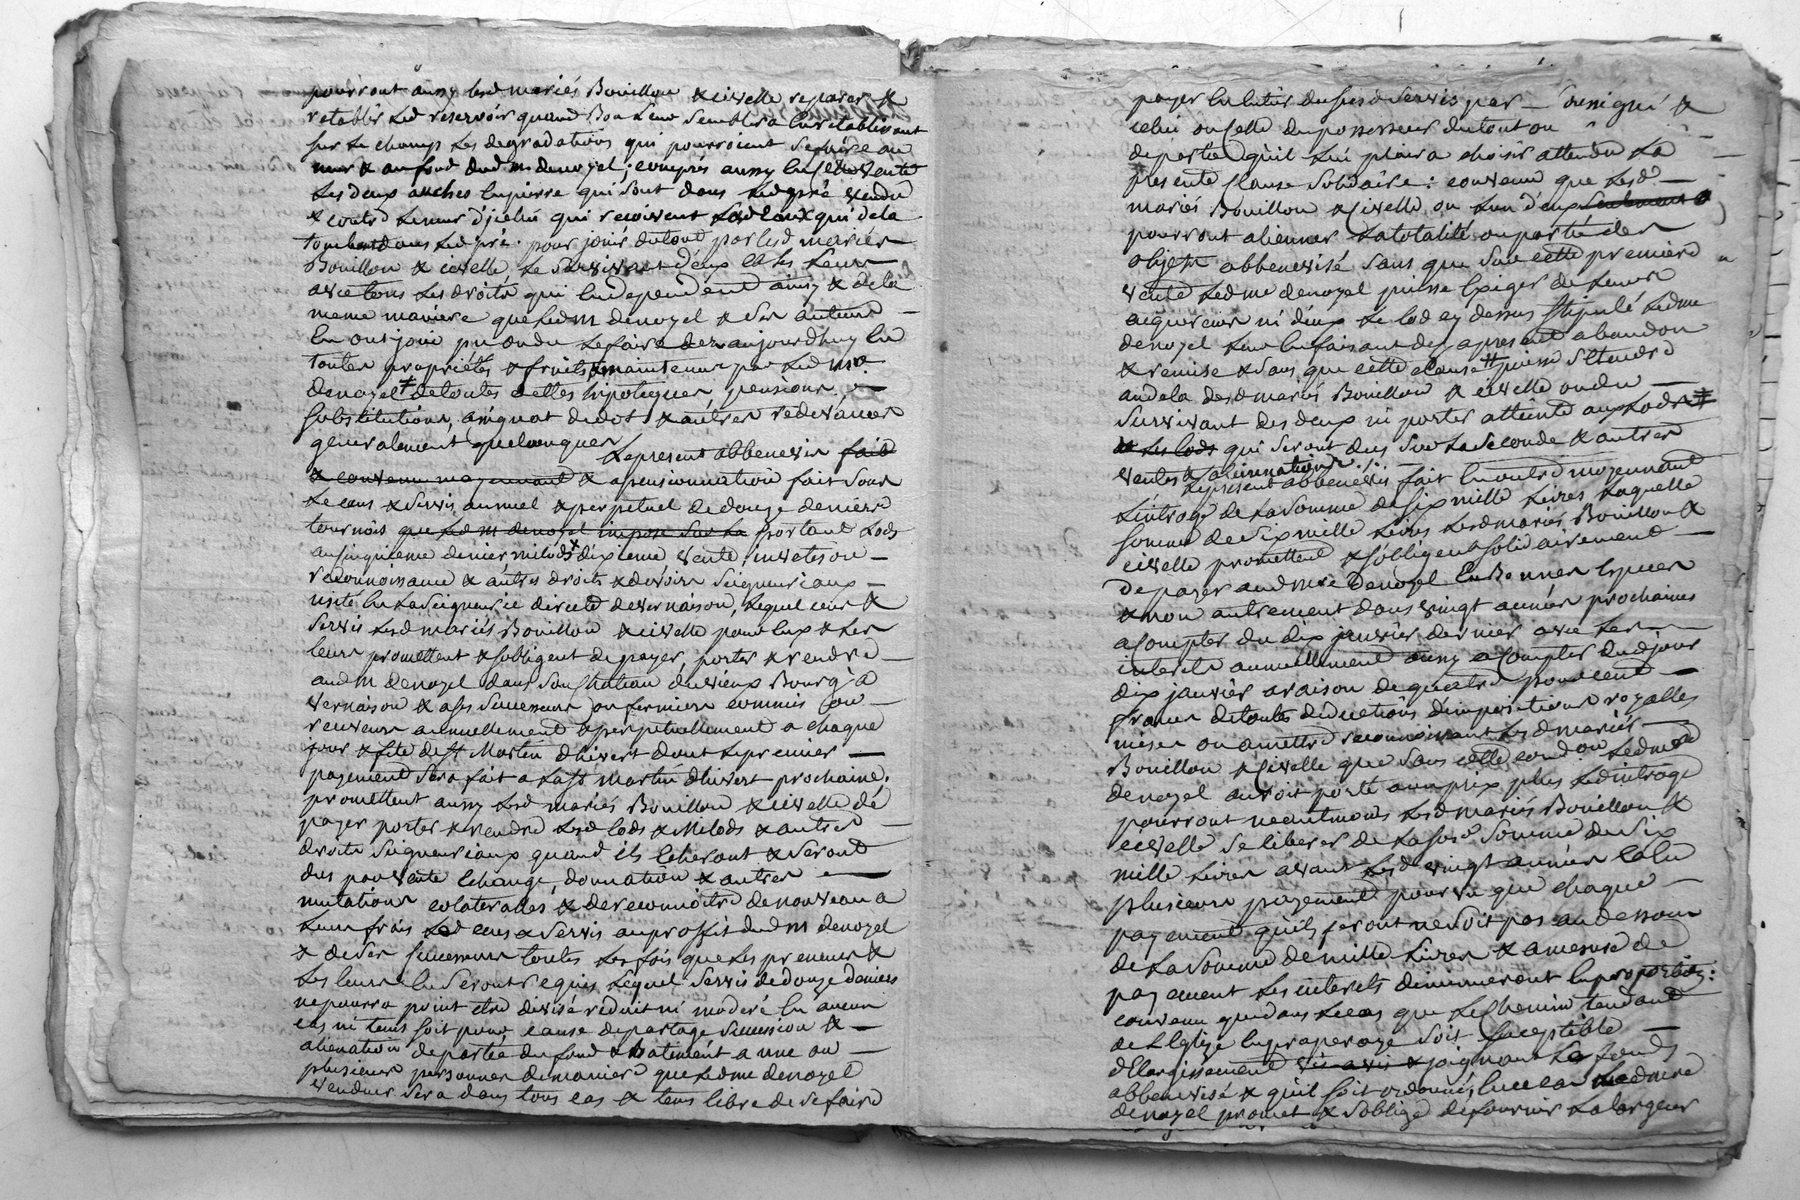 pourront aussy lesd mariés Bouillon & civelle reparer &
retablir led reservoir quand Bon Leur Semblera En retablissant
sur Le champs Les degradations qui pourroient Se faire au
mur & au fond dud m denoyel; compris aussy En cette vente
Les deux auches En pierre qui Sont dans Led pré vendu
& contre Le mur d'jcelui qui recoivent Lesd Eaux qui de la
tombent dans Led pré. pour jouir du tout par Lesd mariés
Bouillon & civelle, Le Survivant d'eux & les Leurs
avec tous Les droits qui En dependent ainsy & de la
meme maniere que Led m denoyel & Ses auteurs
En ont joui pu ou du Le faire des aujourdhuy En
toutes proprietés & fruits & maintenue par Led mre
denoyel # de toutes dettes hipoteques, pensions
Substitutions, assignat de dot & autres redevances
generalement quelconques Le present abbenevis fait
& convenu moyennant & apensionnation fait Sous
Le cens & Servis annuel & perpetuel de douze deniers
tournois que Led m denoyel impose Sur La portant Lods
au cinquieme denier milods & dixieme vente, investison
reconnoissance & autres droits & devoirs Seigneuriaux
usité En La Seigneurie directe de vernaison, Lequel cens &
Servis Lesd mariés Bouillon & civelle pour Eux & Les
Leurs promettent & sobligent de payer, porter & rendre
aud m denoyel dans Son Chateau du vieux Bourg a
vernaison & a Ses Successeurs ou fermiers commis ou
receveurs annuellement & perpetuellement a chaque
jour & fete de St Martin dhivert dont Le premier
payement Sera fait a La St martin dhivert prochaine,
promettent aussy Lesd mariés Bouillon & civelle de
payer porter & rendre Lesd lods & Milods & autres
droits Seigneuriaux quand ils Echeront & Seront
dus par vente Echange, donnation & autres
mutations colateralles & de reconnoitre de nouveau a
Leurs frais Led cens & Servis au proffit dud m denoyel
& de Ses Successeurs toutes Les fois que Les preneurs &
Les leurs En Seront requis Lequel Servis de douze deniers
ne pourra point etre divisé reduit ni moderé En aucun
cas ni tems soit pour cause de partage Succession &
alienation de partie du fond & Batiment a une ou
plusieurs personnes de maniere que Led me denoyel
vendeur Sera dans tous cas & tems libre de Se faire
payer En Entier du susd Servis par
celui ou Celle du possesseur du tout ou
de partie qu'il Lui plaira choisir attendu La
presente Clause Solidaire: convenu que Lesd
mariés Bouillon & Civelle ou Lun d'eux Seulement
pourront aliener La totalité ou partie des
objets abbenevisé Sans que Sur cette premiere
vente Led me denoyel puisse Exiger de Leurs
acquereurs ni d'eux Le lod cy dessus Stipulé Led me
denoyel Leur En faisant des apresent abandon
& remise & Sans que cette clause # puisse S'Etendre
audela desd mariés Bouillon & civelle ou du
Survivant des deux ni porter atteinte aux Lods #
& Les lods qui Seront dus Sur La Seconde & autres
ventes & alienations.
Le present abbenevis fait En outre moyennant
L'Entrage de La Somme de Six mille Livres Laquelle
Somme de Six mille Livres Lesd mariés Bouillon &
civelle promettent & sobligent Solidairement
de payer aud mre Denoyel En Bonnes Especes
& non autrement dans vingt années prochaines
a Compter du dix janvier dernier avec Les
interets annuellement aussy a Compter dud jour
dix janvier a raison de quatre pour cent
francs de toutes deductions d'impositions royalles
mises ou a mettre reconnoissant Lesd mariés
Bouillon & Civelle que Sans cette cond.on Led mre
denoyel auroit porté au prix plus Led entrage
pourront neantmoins Lesd mariés Bouillon &
civelle Se liberer de La susd. Somme de Six
mille Livres avant Lesd vingt années En
plusieurs payements pourvu que chaque
payement qu'ils feront ne Soit pas au dessous
de La Somme de mille Livres & a mesure de
payement Les interets diminueront En proportion:
convenu que dans Le cas que Le Chemin tendant
de L'Eglise En praperoze Soit Suceptible
d'Elargissement vis avis & joignant Les fonds
abbenevisé & qu'il soit ordonné, En ce cas Led mre
denoyel promet & Soblige de fournir La largeur